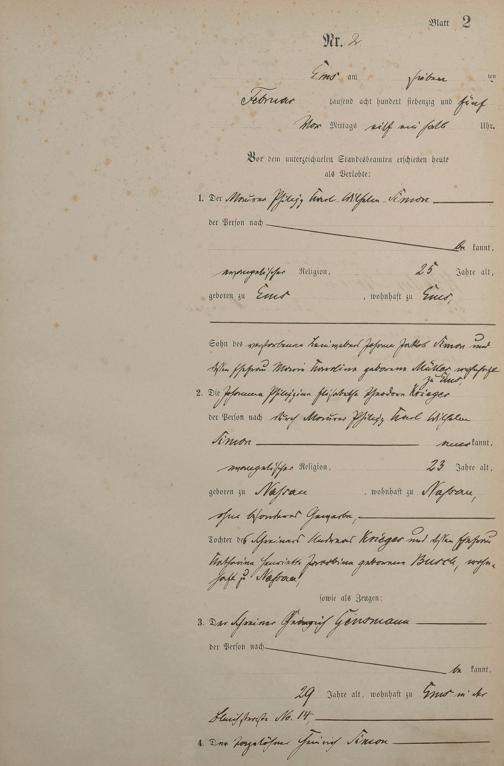 Blatt 2
Nr. 2.
Ems am sieben ten
Februar tausend acht hundert siebenzig und fünf
Vor Mittags eilf ein halb Uhr.
Vor dem unterzeichneten Standesbeamten erschienen heute
als Verlobte:
1. Der Maurer Philipp Karl Wilhelm Simon
der Person nach
be kannt,
evangelischer Religion, 25 Jahre alt,
geboren zu Ems, wohnhaft zu Ems,
Sohn des verstorbenen Leinwebers Johann Jakob Simon und
dessen Ehefrau Marie Karoline geborene Müller wohnhaft
zu Ems,
2. Die Johanna Philippine Elisabethe Theodore Krieger
der Person nach durch Maurer Philipp Karl Wilhelm
Simon kannt,
evangelischer Religion, 23 Jahre alt,
geboren zu Nassau, wohnhaft zu Nassau,
ohne besonderes Gewerbe,
Tochter des Schreiners Andreas Krieger und dessen Ehefrau
Katharine Henriette Jacobine geborenen Busch, wohn-
haft zu Nassau,
sowie als Zeugen:
3. Der Schreiner Gensmann
der Person nach
be kannt,
29 Jahre alt, wohnhaft zu Ems in der
No. 14,
4. Der Tagelöhner Heinrich Simon